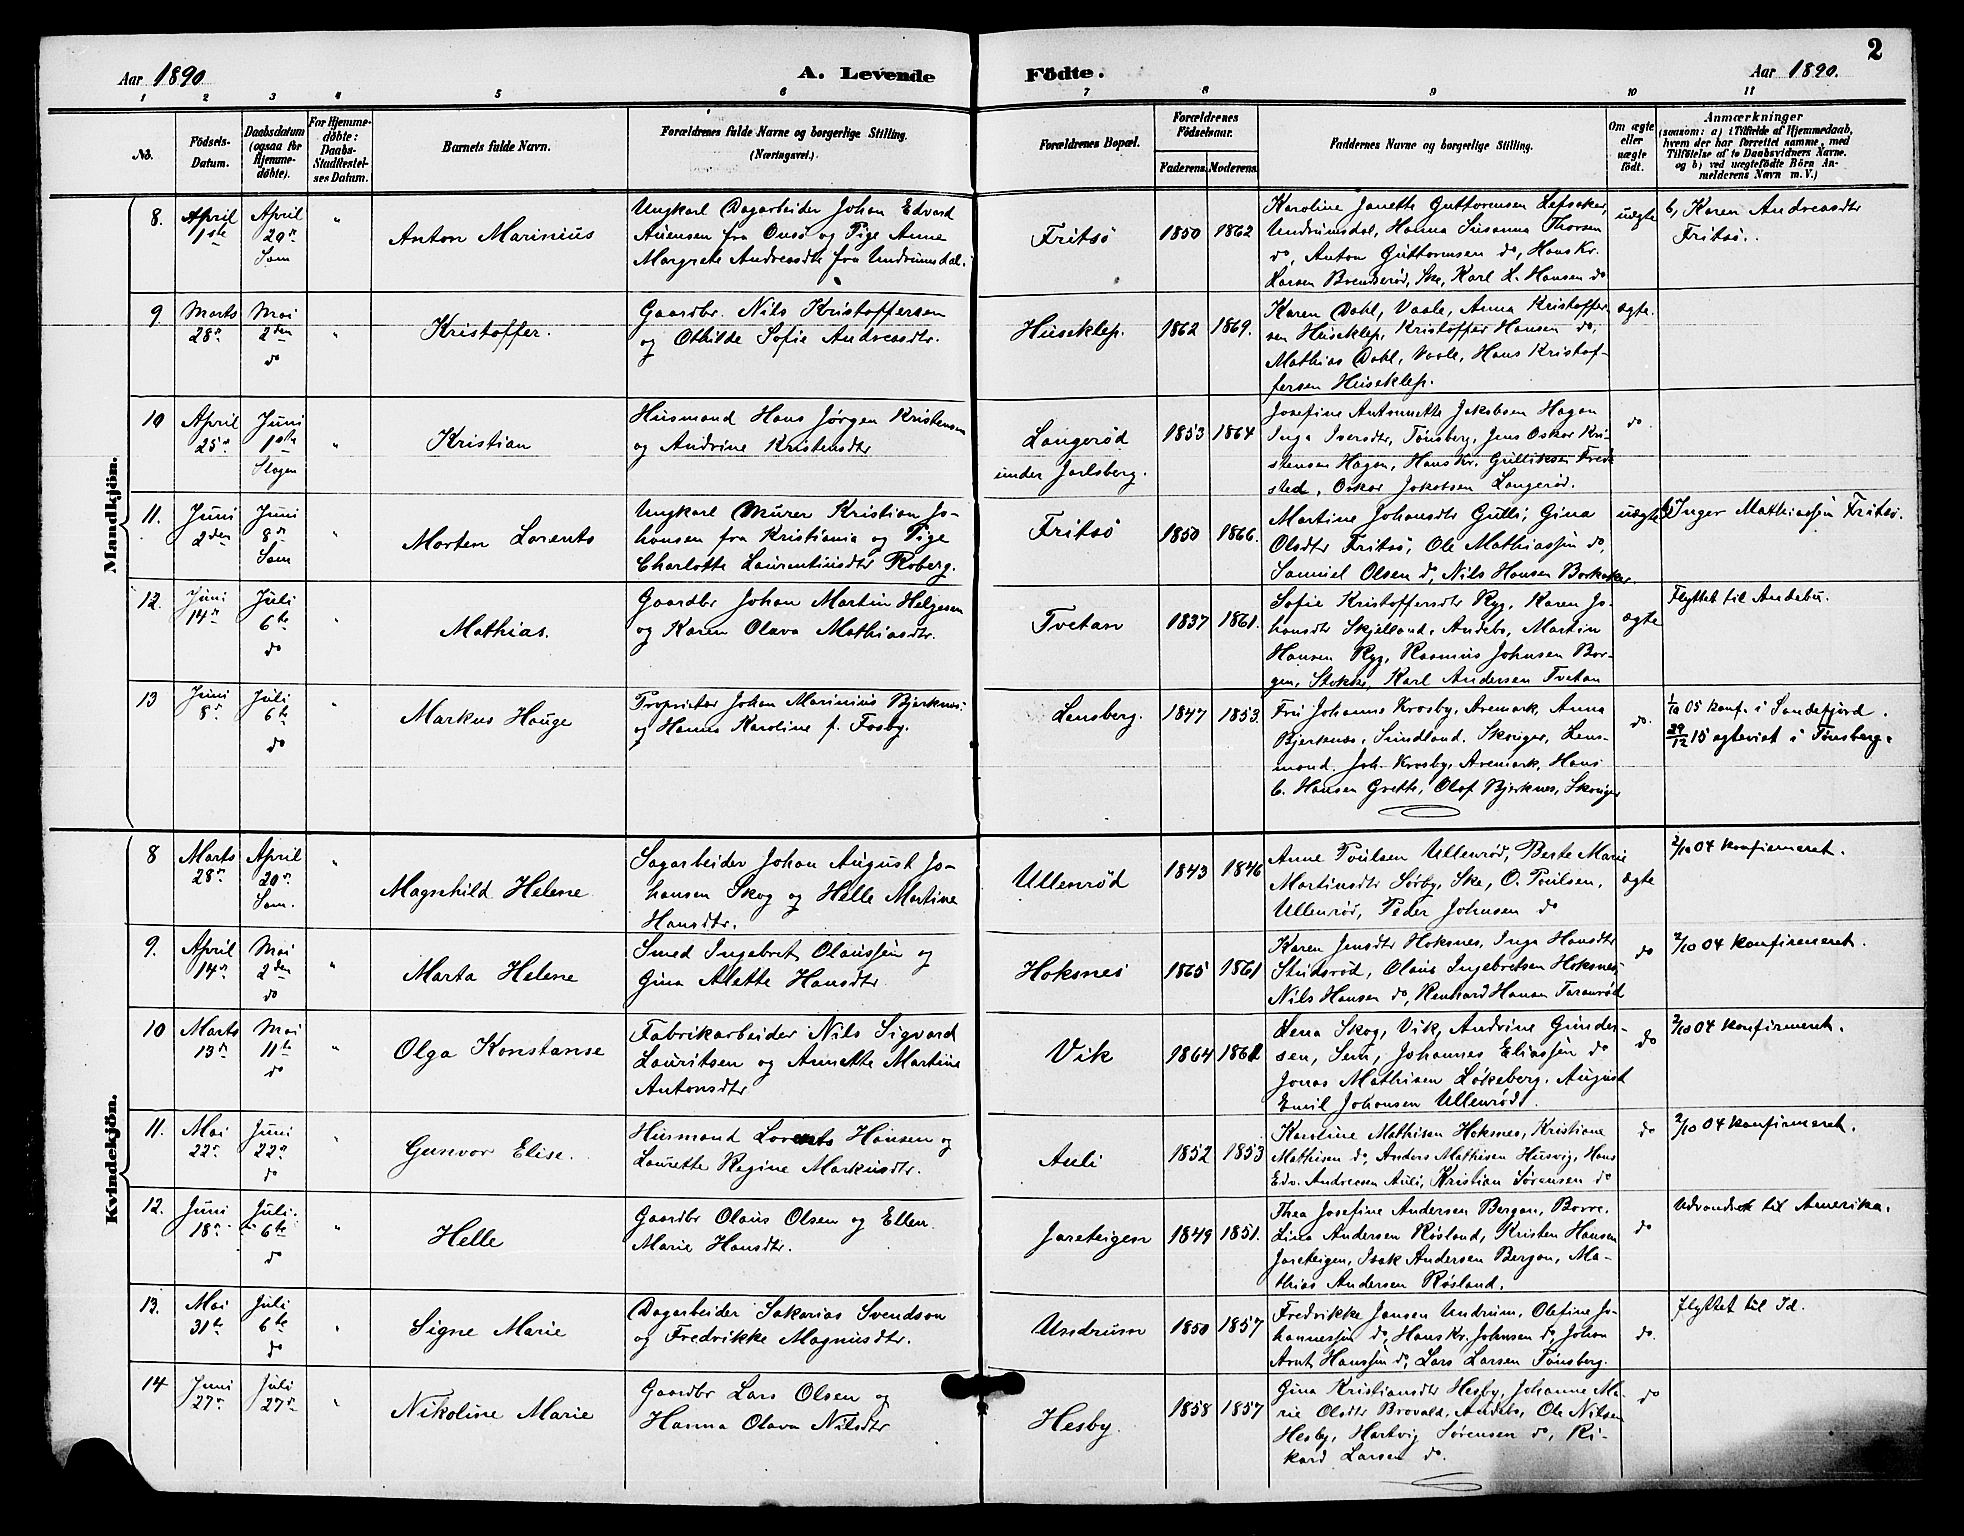 2
Aar 1890
A. Levende
Födte.
Aar 1890.
1 2 3 4 5 6 7 8 9 10 11
No.
Födsels-
Datum.
Daabsdatum
(ogsaa for
Hjemme-
döbte).
For Hjemme-
döbte:
Daabs-
Stadfæstel-
ses Datum.
Barnets fulde Navn.
Forældrenes fulde Navne og borgerlige Stilling.
(Næringsvei.)
Forældrenes Bopæl.
Forældrenes
Födselsaar.
Faderens. Moderens.
Faddernes Navne og borgerlige Stilling.
Om ægte
eller
uægte
født.
Anmærkninger
(saasom: a) i Tilfælde af Hjemmedaab,
hvem der har forrettet samme, med
Tilföielse af to Daabsvidners Navne.
og b) ved uægtefödte Börn An-
melderens Navn m. V.)
Mandkjön.
8.
April
1ste
April
20de
Sem
"
Anton Marinius
Ungkarl Dagarbeider Johan Edvard
Auensen fra Onsö og Pige Anne
Margrete Andreasdtr fra Undrumsdal.
Fritsö
1850
1862
Karoline Janeth Guttormsen Lefsaker,
Undrumsdal, Hanna Susanna Thorsen
do, Anton Guttormsen do, Hans Kr.
Larsen Brendserød, Ske, Karl L. Hansen do
uægte
b, Karen Andreasdtr
Fritsö.
9.
Marts
28de
Mai
2den
do
"
Kristoffer.
Gaardbr. Nils Kristoffersen
og Othilde Sofie Andreasdtr.
Huseklep.
1862
1869.
Karen Dahl, Vaale, Anna Kristoffer-
sen Huseklep, Kristoffer Hansen do,
Mathias Dahl, Vaale, Hans Kristof-
fersen Huseklep.
ægte.
10
April
25de
Juni
1ste
Slagen
"
Kristian
Husmand Hans Jørgen Kristensen
og Andrine Kristensdtr
Langerød
under Jarlsberg.
1853
1864
Josefine Antonette Jakobsen Hagan
Inga Iversdtr, Tønsberg, Jens Oskar Kri-
stensen Hagan, Hans Kr. Gulliksen Fred-
sted, Oskar Jakobsen Langerød.
do
11.
Juni
2den
Juni
8de
Sem
"
Morten Lorents
Ungkarl Murer Kristian Jo-
hansen fra Kristiania og Pige
Charlotte Laurentiusdtr Roberg.
Fritsö
1850
1866.
Martine Johansdtr Gulli, Gina
Olsdtr Fritsö, Ole Mathiassen do,
Samuel Olsen do, Nils Hansen Borkaker.
uægte
Inger Mathiassen Fritsö.
12.
Juni
14de
Juli
6te
do
"
Mathias.
Gaardbr Johan Martin Helgesen
og Karen Olava Mathiasdtr.
Tvetan
1837
1861.
Sofie Kristoffersdtr Ryg, Karen Jo-
hansdtr Skjelland, Andebo, Martin
Hansen Ryg, Rasmus Johnsen Bor-
gen, Stokke, Karl Andersen Tvetan
ægte
Flyttet til Andebu.
13
Juni
8de
Juli
6te
do
"
Markus Hauge
Proprietær Johan Marinius Bjerknes
og Hanna Karoline f. Fosby.
Lensberg.
1847
1853.
Fru Johanne Krosby, Aremark, Anna
Bjerknes, Smidland, Skouger, Lens-
mand Joh. Krosby, Aremark, Hans
C. Hansen Greth, Olof Bjerknes, Skouger
do.
1/10 05 konf. i Sandefjord.
29/12 15 ægteviet i Tønsberg.
Kvindekjön.
8
Marts
28de
April
20de
Sem.
"
Magnhild Helene
Sagarbeider Johan August Jo-
hansen Skog og Helle Martine
Hansdtr.
Ullenrød
1843
1846
Anne Poulsen Ullenrød, Berte Marie
Martinsdtr Sørby, Ske, O. Poulsen,
Ullenrød, Peder Johnsen do
ægte
2/10 04 konfirmeret.
9.
April
14de
Mai
2den
do
"
Marta Helene
Smed Ingebret Olaussen og
Gina Alette Hansdtr
Hoksnes
1865
1861
Karen Jensdtr Hoksnes, Inga Hansdtr
Studsrød, Olaus Ingebretsen Hoksnes,
Nils Hansen do, Renhard Hansen Faranrød
do
2/10 04 konfirmeret.
10
Marts
13de
Mai
11te
do
"
Olga Konstanse
Fabrikarbeider Nils Sigvard
Lauritsen og Annette Martine
Antonsdtr
Vik
1864
1861
Lena Skog, Vik, Andrine Gunder-
sen, Sem, Johannes Eliassen do
Jonas Mathisen Løkeberg, August
Emil Johansen Ullenrød.
do
2/10 04 konfirmeret.
11.
Mai
22de
Juni
22de
do
"
Gunvor Elise.
Husmand Lorents Hansen og
Laurette Regine Markusdtr.
Auli
1852
1853
Karoline Mathisen Hoksnes, Kristiane
Mathisen do, Anders Mathisen Husvig, Hans
Edv. Andreasen Auli, Kristian Sørensen do
do
2/10 04 konfirmeret.
12.
Juni
18de
Juli
6te
do
"
Helle
Gaardbr Olaus Olsen og Ellen
Marie Hansdtr.
Jareteigen
1849
1851.
Thea Josefine Andersen Bergan, Borre,
Lina Andersen Røsland, Kristen Hansen
Jareteigen, Isak Andersen Bergan, Ma-
thias Andersen Røsland.
do
Udvandret til Amerika.
13.
Mai
31te
Juli
6te
do
"
Signe Marie
Dagarbeider Sakarias Svendsen
og Fredrikke Magnusdtr.
Undrum
1850
1857
Fredrikke Jansen Undrum, Olefine Jo-
hannessen do, Hans Kr. Johnsen do, Johan
Arnt Hanssen do, Lars Larsen Tønsberg.
do.
flyttet til Id.
14
Juni
27de
Juli
27de
"
Nikoline Marie
Gaardbr Lars Olsen og
Hanna Olava Nilsdtr
Hesby.
1858
1857
Gina Kristiansdtr Hesby, Johanne Ma-
rie Olsdtr Brovald, Andebo, Ole Nilsen
Hesby, Hartvig Sørensen do, Ri-
kard Larsen do.
do